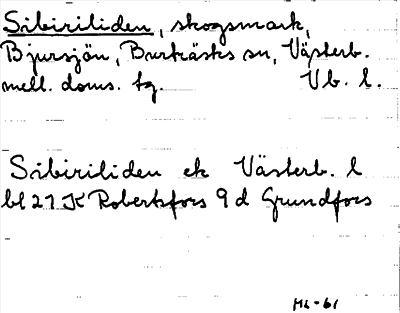 Sibiriliden, skogsmark,
Bjursjön, Burträsks sn, Västerb.
mell. doms. tg. Vb. l.
Sibiriliden ek Västerb. l
bl 21 K Robertsfors 9 d Grundfors
ML-61